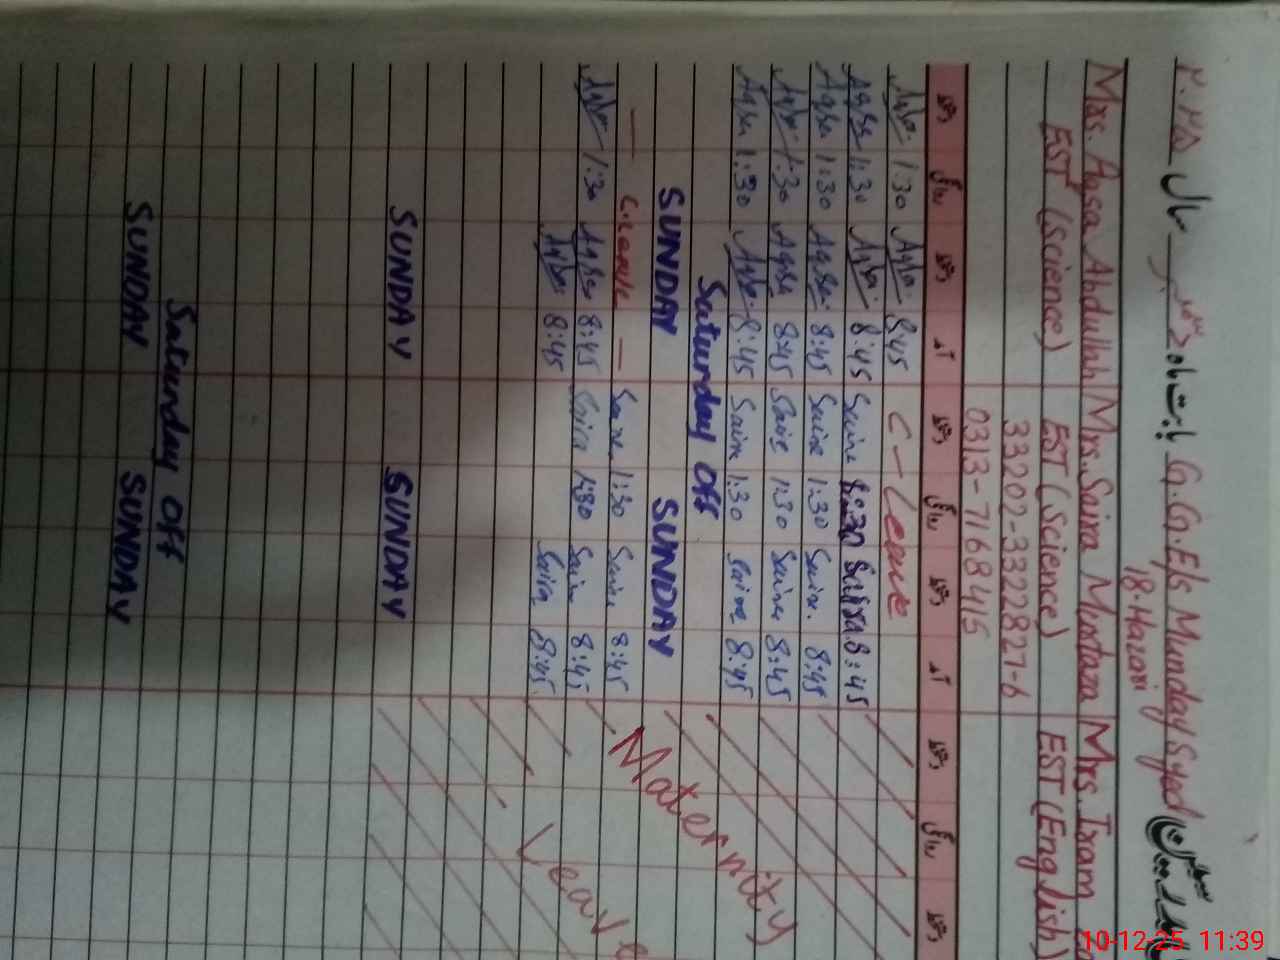 G.G.E/s Munday Syed بابت ماہ دسمبر سال ۲۰۲۵
18-Hazari
Mrs. Aqsa Abdullah Mrs. Saira Murtaza Mrs. Iram
EST (Science) EST (Science) EST (English)
33202-3322827-6
0313-7168415
دستخط روانگی دستخط آمد دستخط روانگی دستخط آمد دستخط روانگی دستخط
Aqsa 1:30 Aqsa 8:45 C-Leave
Aqsa 1:30 Aqsa 8:45 Saira 1:30 Saira 8:45
Aqsa 1:30 Aqsa 8:45 Saira 1:30 Saira 8:45
Aqsa 1:30 Aqsa 8:45 Saira 1:30 Saira 8:45
Aqsa 1:30 Aqsa 8:45 Saira 1:30 Saira 8:45
Saturday Off
SUNDAY SUNDAY
— C.Leave — Saira 1:30 Saira 8:45
Aqsa 1:30 Aqsa 8:45 Saira 1:30 Saira 8:45
Aqsa 8:45 Saira 8:45
Maternity
Leave
SUNDAY SUNDAY
Saturday Off
SUNDAY SUNDAY
10-12-25 11:39